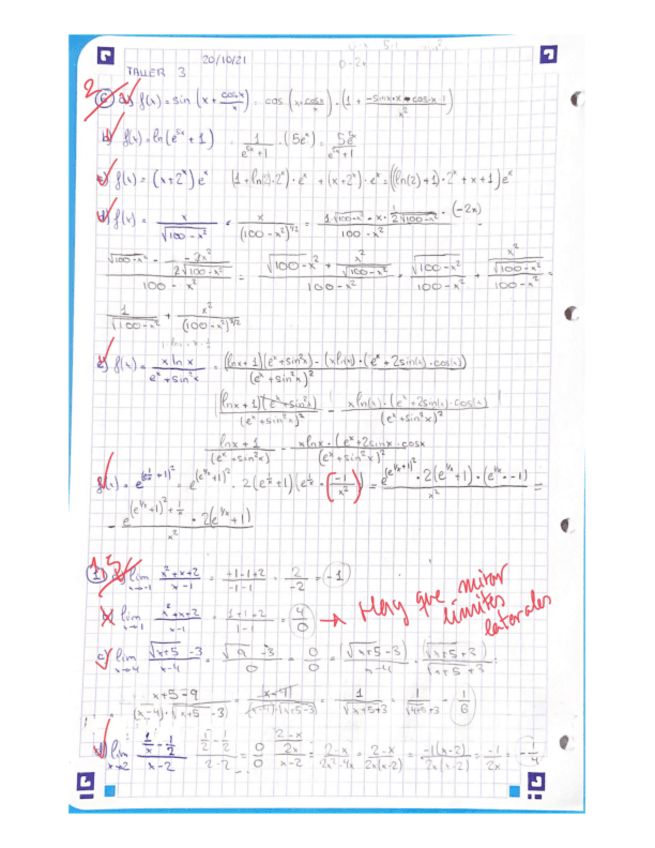 20/10/21
TALLER 3
2
6 a) f(x) = sin (x + cosx/x) = cos (x + cosx/x) · (1 + (-sinx·x - cosx·1)/x²)
b) f(x) = ln(e^5x + 1) 1/(e^5x + 1) · (5e^x) = 5e^x/(e^5x + 1)
c) f(x) = (x + 2^x) e^x (1 + ln(2)·2^x) · e^x + (x + 2^x) · e^x = ((ln(2) + 1) · 2^x + x + 1) e^x
d) f(x) = x/√(100 - x²) = x/(100 - x²)^1/2 = (1·√(100 - x²) - x · 1/(2√(100 - x²)) · (-2x))/(100 - x²)
(√(100 - x²) - (-2x²)/(2√(100 - x²)))/(100 - x²) = (√(100 - x²) + x²/√(100 - x²))/(100 - x²) = √(100 - x²)/(100 - x²) + (x²/√(100 - x²))/(100 - x²) =
1/√(100 - x²) + x²/(100 - x²)^3/2
e) f(x) = x ln x/(e^x + sin²x) = ((lnx + 1)(e^x + sin²x) - (x ln(x)) · (e^x + 2sin(x) · cos(x)))/(e^x + sin²x)²
(lnx + 1)(e^x + sin²x)/(e^x + sin²x)² - x ln(x) · (e^x + 2sin(x) · cos(x))/(e^x + sin²x)²
(lnx + 1)/(e^x + sin²x) - xlnx · (e^x + 2sinx · cosx/(e^x + sin²x)²
f(x) = e^(e^1/x + 1)² = e^(e^1/x + 1)² · 2(e^1/x + 1)(e^1/x · (-1/x²)) = e^(e^1/x + 1)² · 2(e^1/x + 1) · (e^1/x · -1)/x² =
- e^((e^1/x + 1)² + 1/x) · 2(e^1/x + 1)/x²
1,5
1 a) lim x→-1 (x² + x + 2)/(x - 1) = (+1 - 1 + 2)/(-1 - 1) = 2/-2 = -1
b) lim x→1 (x² + x + 2)/(x - 1) = (1 + 1 + 2)/(1 - 1) = 4/0 → Hay que mirar
límites
laterales
c) lim x→4 (√(x+5) - 3)/(x - 4) = (√9 - 3)/0 = 0/0 = (√(x+5) - 3)/(x - 4) · (√(x+5) + 3)/(√(x+5) + 3) =
(x + 5 - 9)/((x - 4) · (√(x+5) - 3)) = (x - 4)/((x - 4)·(√(x+5) - 3)) = 1/(√(x+5) + 3) = 1/(√(4+5) + 3) = 1/6
d) lim x→2 (1/x - 1/2)/(x - 2) (1/2 - 1/2)/(2 - 2) = 0/0 ((2 - x)/2x)/(x - 2) = (2 - x)/(2x² - 4x) = (2 - x)/(2x(x - 2)) = -1(x - 2)/(2x(x - 2)) = -1/2x = -1/4